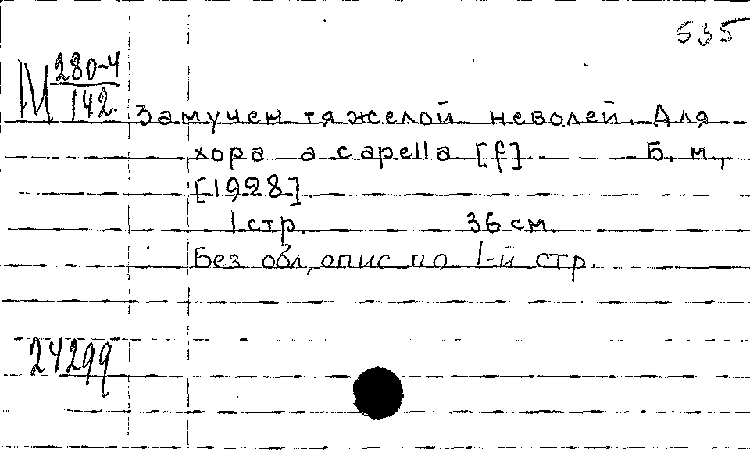 535
М 280-4
142.
Замучен тяжелой неволей. Для
хора a capella [f] Б. м.,
[1928].
1 стр. 36 см.
Без обл, опис по 1-й стр.
24299